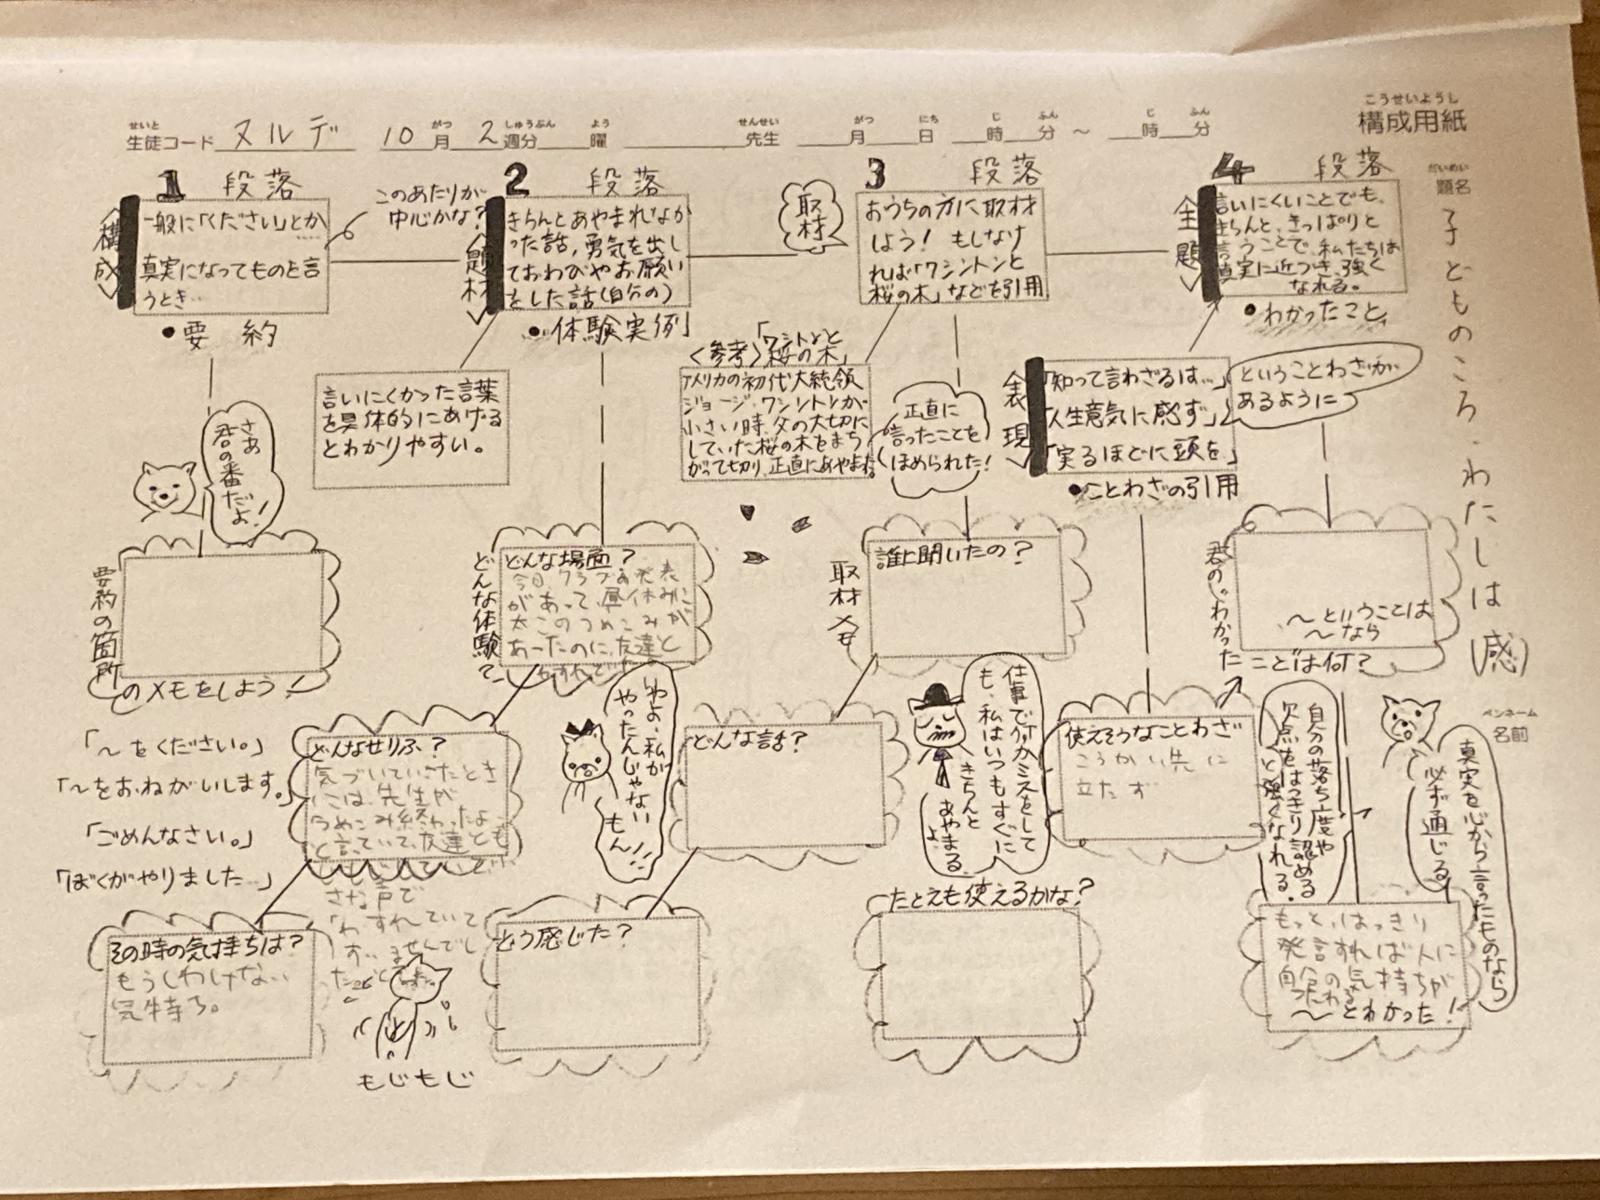 こうせいようし
構成用紙
せいと
生徒コード ヌルデ 10月 2週分 曜 先生 月 日 時 分 〜 時 分
がつ しゅうぶん よう せんせい がつ にち じ ふん じ ふん
だいめい
題名
子どものころ、わたしは(感)
ペンネーム
名前
1 段落
<構成>
一般に「ください」とか
真実になってものを言
うとき‥
•要約
このあたりが
中心かな?
2 段落
<題材>
きちんとあやまれなか
った話，勇気を出し
ておわびやお願い
をした話(自分の)
•体験実例」
言いにくかった言葉
を具体的にあげる
とわかりやすい。
取材
3 段落
おうちの方に取材
しよう! もしなけ
れば「ワシントンと
桜の木」などを引用
<参考>「ワシントンと
桜の木」
アメリカの初代大統領
ジョージ・ワシントンが
小さい時、父の大切に
していた桜の木をまち
がって切り、正直にあやまった。
正直に
言ったことを
ほめられた!
4 段落
<主題>
言いにくいことでも、
きちんと、きっぱりと
言うことで、私たちは
真実に近づき、強く
なれる。
•わかったこと、
<表現>
「知って言わざるは…」
「人生意気に感ず」
「実るほどに頭を」
•ことわざの引用
ということわざが
あるように
さあ
君の番だよ!
要約の箇所
のメモをしよう!
「〜をください。」
「〜をおねがいします。」
「ごめんなさい。」
「ぼくがやりました…」
どんな体験?
どんな場面?
今日、クラブの発表
があって、昼休みに
太このつめこみが
あったのに、友達と
わすれて
どんなせりふ?
気づいていったとき
には、先生が
つめこみ終わったよ
と言っていて、友達とも
さな声で
「わすれていて
すいませんでし
た」
その時の気持ちは?
もうしわけない
気持ち。
もじもじ
いやよ、私が
やったんじゃない
もん!!
取材メモ
誰に聞いたの?
どんな話?
どう感じた?
仕事で何かミスをして
も、私はいつもすぐに
きちんと
あやまるよ
たとえも使えるかな?
使えそうなことわざ
こうかい先に
立たず
君の、わかった
ことは何?
〜ということは
〜なら
自分の落ち度や
欠点をはっきり認める
と強くなれる。
真実を心から言ったものなら
必ず通じる
もっと、はっきり
発言すれば人に
自分の気持ちが
つたわる
〜とわかった!